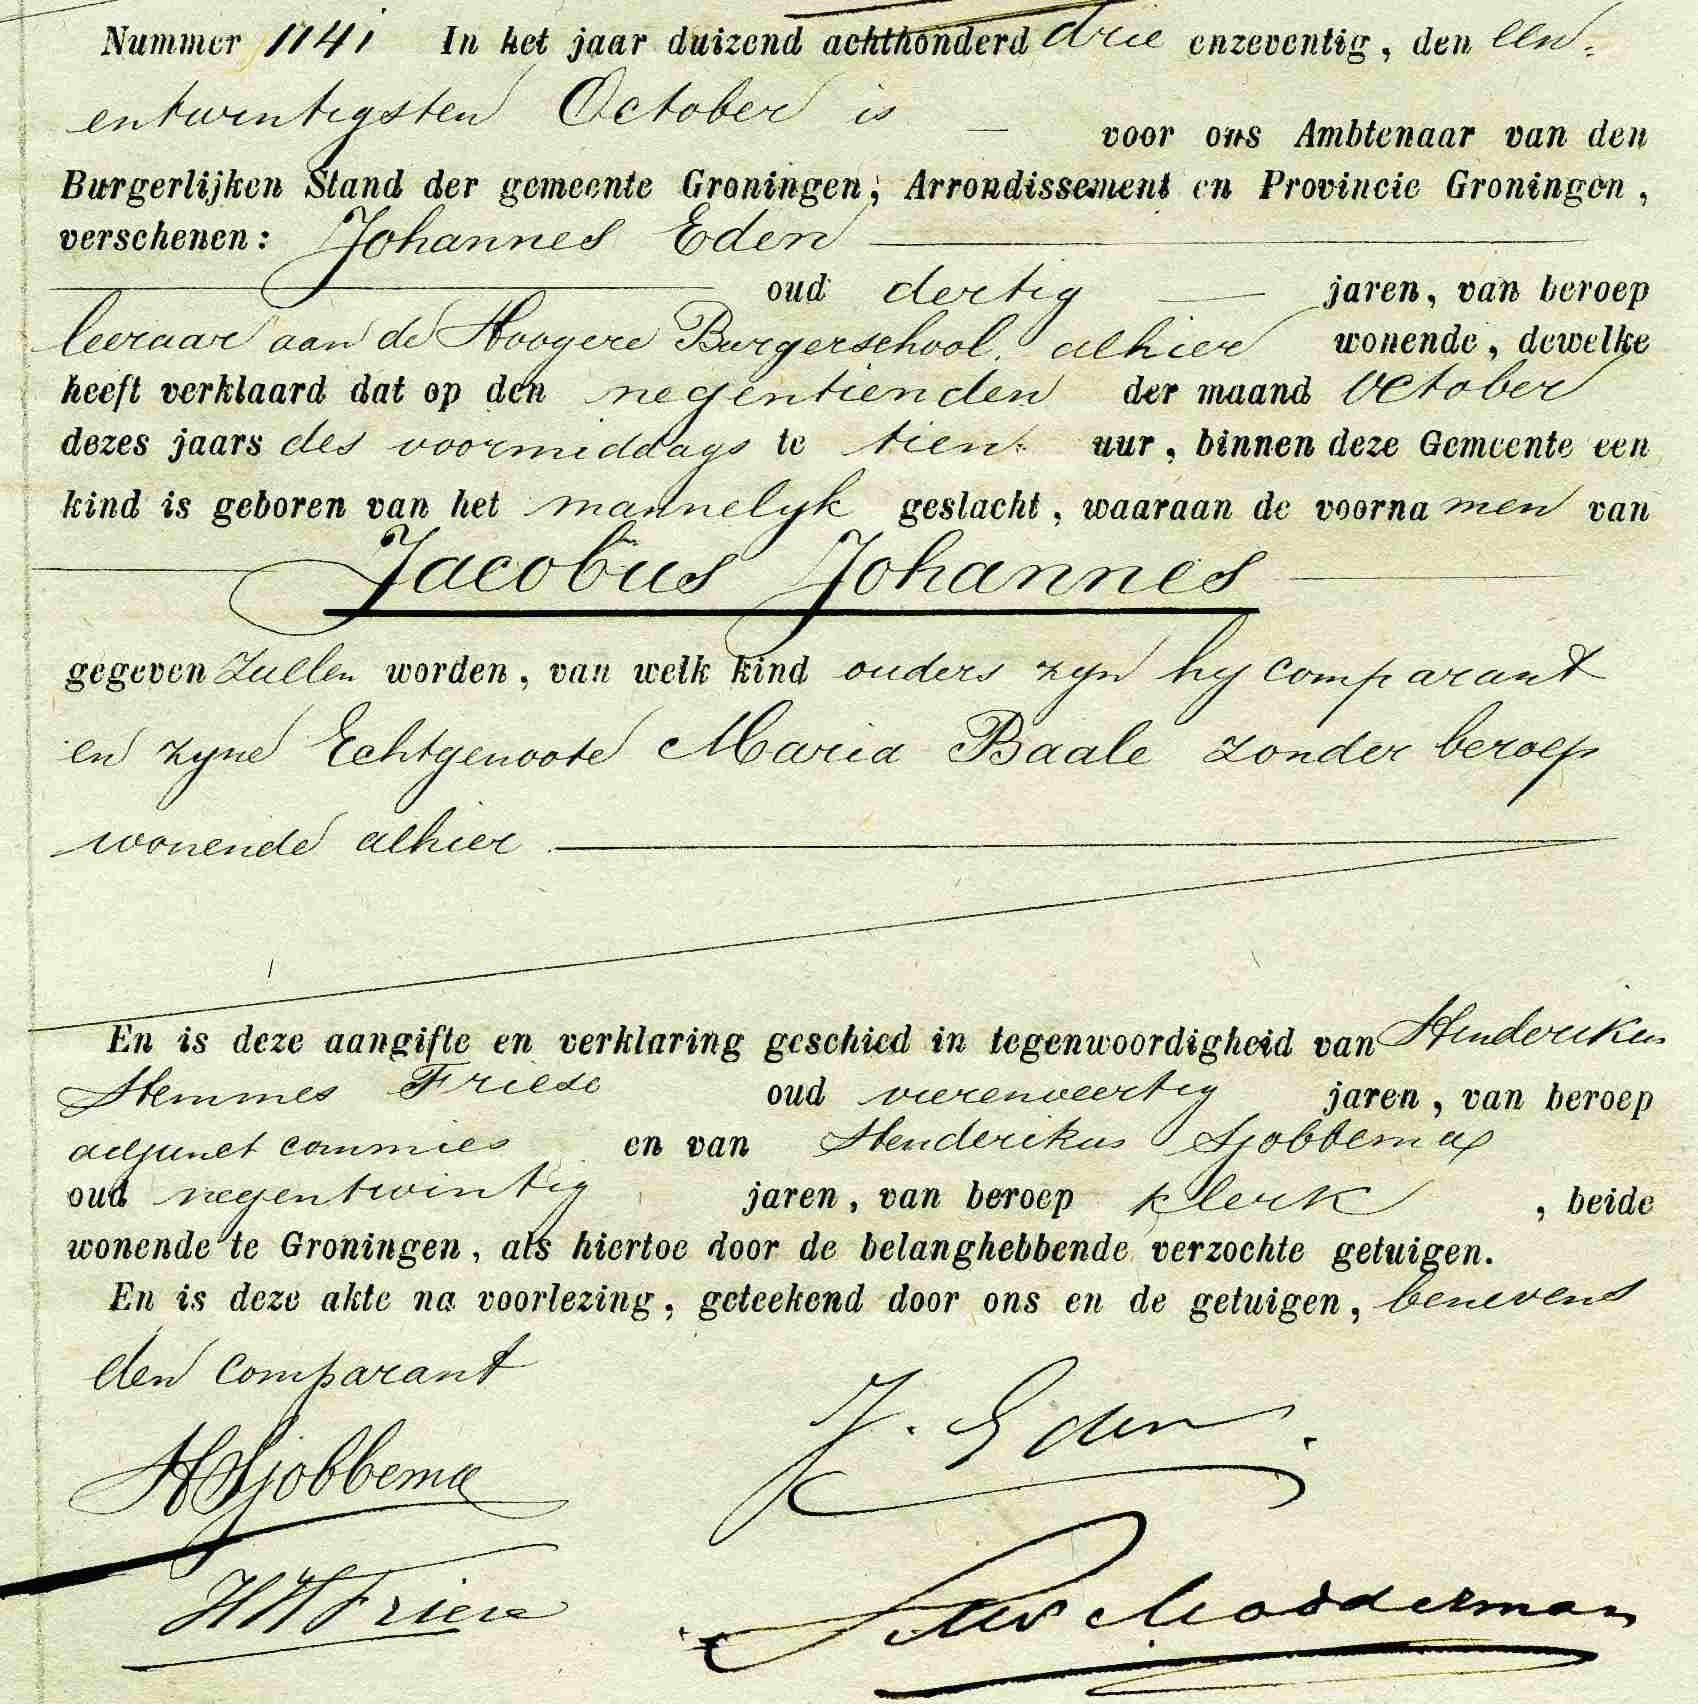 Nummer 1141 In het jaar duizend achthonderd drie enzeventig, den een-
entwintigsten October is voor ons Ambtenaar van den
Burgerlijken Stand der gemeente Groningen, Arrondissement en Provincie Groningen,
verschenen: Johannes Eden
oud dertig jaren, van beroep
leeraar aan de Hoogere Burgerschool, alhier wonende, dewelke
heeft verklaard dat op den negentienden der maand October
dezes jaars des voormiddags te tien uur, binnen deze Gemeente een
kind is geboren van het mannelyk geslacht, waaraan de voorna men van
Jacobus Johannes
gegeven zullen worden, van welk kind ouders zyn hy comparant
en zyne Echtgenoote Maria Baale zonder beroep
wonende alhier
En is deze aangifte en verklaring geschied in tegenwoordigheid van Henderikus
Hemmes Friese oud vierenveertig jaren, van beroep
adjunct commies en van Henderikus Sjobbema
oud negentwintig jaren, van beroep klerk, beide
wonende te Groningen, als hiertoe door de belanghebbende verzochte getuigen.
En is deze akte na voorlezing, geteekend door ons en de getuigen, benevens
den comparant
HSjobbema
J. Eden.
HHFriese
Modderman